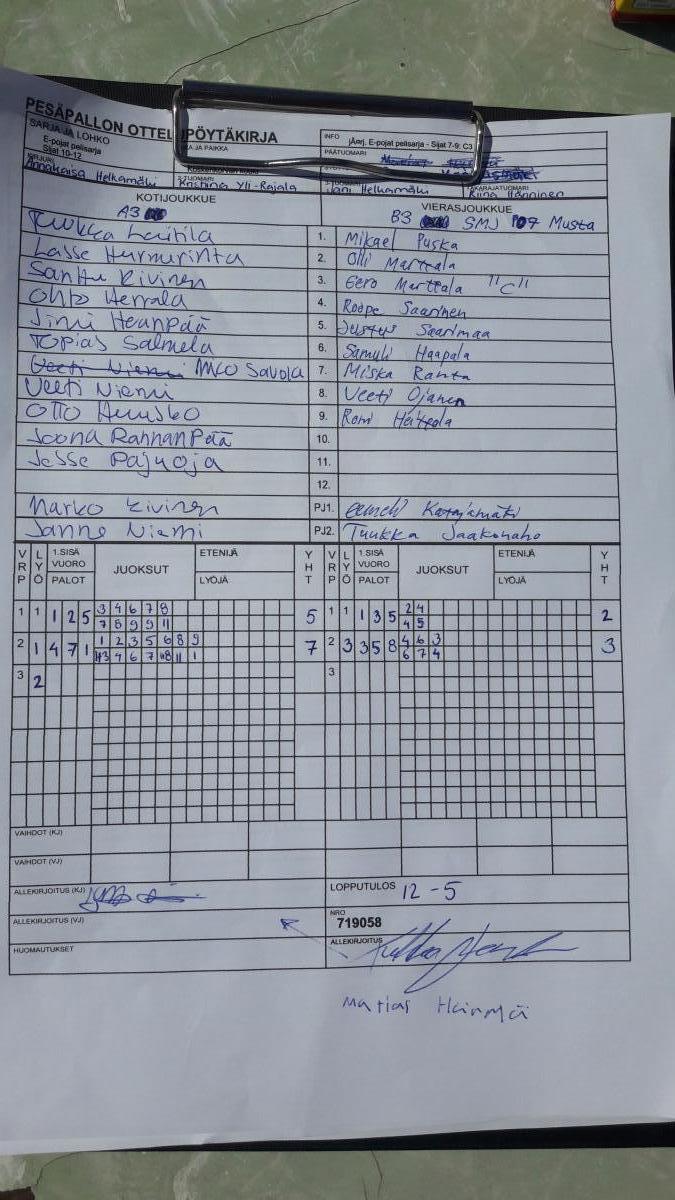 PESÄPALLON OTTEL IPÖYTÄKIRJA
SARJA JA LOHKO
E-pojat pelisarja
Sijat 10-12
KA JA PAIKKA
INFO
jÄarj. E-pojat pelisarja - Sijat 7-9: C3
PÄÄTUOMARI
Annakaisa Helkamäki
Kristiina Yli-Rajala
Jani Helkamäki
TAKARAJATUOMARI
Riina Hänninen
KOTIJOUKKUE
A3
VIERASJOUKKUE
B3 SMJ 07 Musta
Tuukka Laitila 1. Mikael Puska
Lasse Hurmerinta 2. Olli Marttala
Santtu Kivinen 3. Eero Marttala "C"
Ohto Herrala 4. Roope Saarinen
Jimi Heanpää 5. Justus Saarimaa
Topias Salmela 6. Samuli Haapala
Veeti Niemi Mico Savola 7. Miska Ranta
Veeti Niemi 8. Veeti Ojanen
Otto 9. Romi
Joona Rahnanpää 10.
Jesse Pajuoja 11.
12.
Marko Kivinen PJ1. Katajamäki
Janne Niemi PJ2. Tuukka Jaakonaho
VRP LYÖ 1.SISÄ VUORO PALOT JUOKSUT ETENIJÄ LYÖJÄ YHT VRP LYÖ 1.SISÄ VUORO PALOT JUOKSUT ETENIJÄ LYÖJÄ YHT
1 1 1 2 5 3 4 6 7 8 5 1 1 1 3 5 2 4 2
7 8 9 9 11 4 5
2 1 4 7 1 1 2 3 5 6 8 9 7 2 3 3 5 8 4 6 3 3
3 4 6 7 8 11 1 6 7 4
3 2 3
VAIHDOT (KJ)
VAIHDOT (VJ)
ALLEKIRJOITUS (KJ)
LOPPUTULOS 12-5
ALLEKIRJOITUS (VJ)
NRO
719058
HUOMAUTUKSET
ALLEKIRJOITUS
Matias Härmä